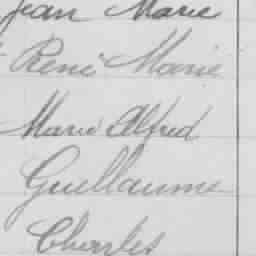 Jean Marie
René Marie
Marie Alfred
Guillaume
Charles